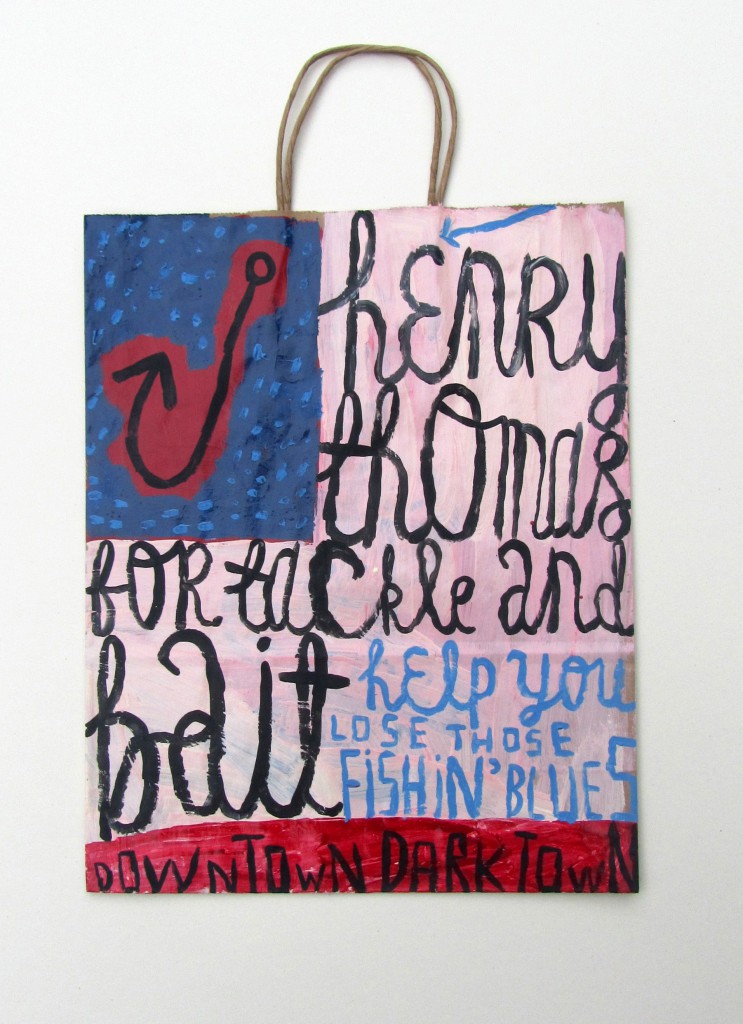 hENRY
thOmas
fOR tackle and
bait
hElp you
LOSE THOSE
FiSHiN' BLUES
DOWNTOWN DARKTOWN